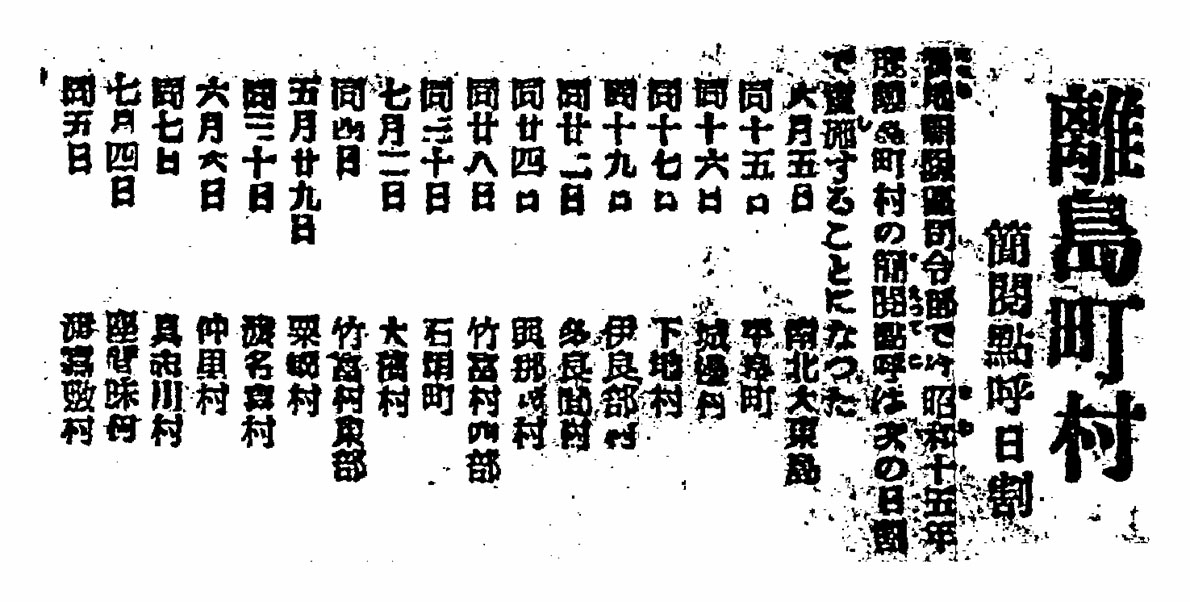 離島町村
簡閲點呼日割
沖繩聯隊區司令部で は昭和十五年
度離島町村の簡閲點呼は次の日割
で實施することになつた
六月五日 南北大東島
同十五日 平良町
同十六日 城邊村
同十七日 下地村
同十九日 伊良部村
同廿二日 多良間村
同廿四日 與那城村
同廿八日 竹富村西部
同三十日 石垣町
七月二日 大濱村
同四日 竹富村東部
五月廿九日 粟國村
同三十日 渡名喜村
六月六日 仲里村
同七日 具志川村
七月四日 座間味村
同五日 渡嘉敷村